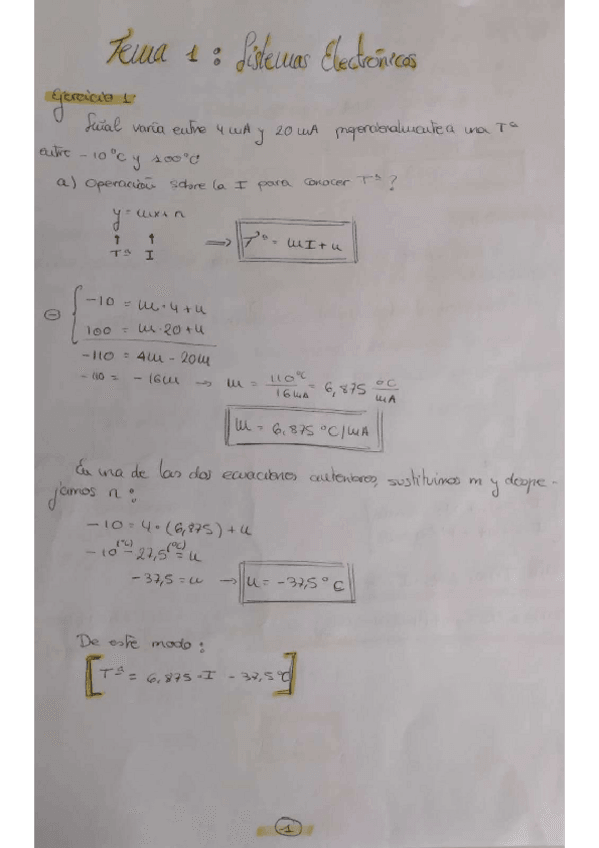 Tema 1: Sistemas Electrónicos
Ejercicio 1:
Señal varía entre 4 mA y 20 mA proporcionalmente a una Tª
entre -10°C y 100°C
a) Operación sobre la I para conocer Tª?
y = mx + n
↑ ↑
Tª I
⟹ Tª = mI + n
⊖ { -10 = m·4 + n
100 = m·20 + n
-110 = 4m - 20m
-110 = -16m → m = 110°C / 16mA = 6,875 °C/mA
m = 6,875 °C/mA
En una de las dos ecuaciones anteriores, sustituimos m y despe-
jamos n:
-10 = 4·(6,875) + n
-10 (°C) - 27,5 (°C) = n
-37,5 = n → n = -37,5°C
De este modo:
[Tª = 6,875·I - 37,5°C]
1